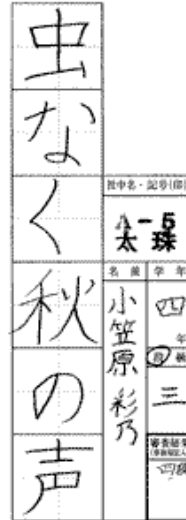 虫なく秋の声
社中名・記号(印)
A-5
太珠
名前
小笠原彩乃
学年
四年
段級
三
審査結果
四段